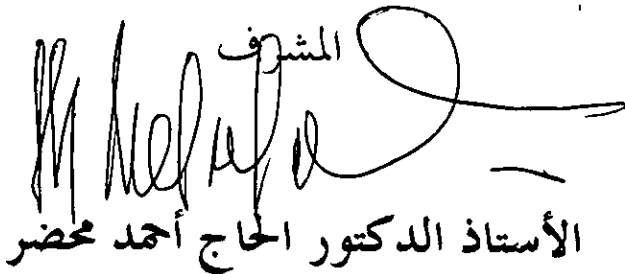 المشرف
الأستاذ الدكتور الحاج أحمد محضر